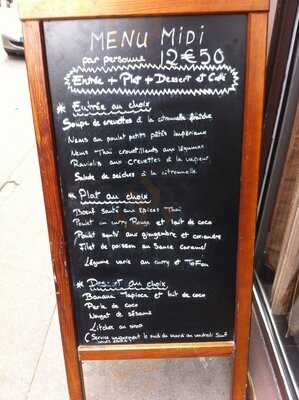 MENU MIDI
par personne 12€50
Entrée + Plat + Dessert et Café
* Entrée au choix
Soupe de crevettes à la citronnelle fraîche
Nems au poulet petits pâtés impériaux
Nems Thai croustillants aux légumes
Raviolis aux crevettes à la vapeur
Salade de seiches à la citronnelle
* Plat au choix
Boeuf sauté aux épices Thai
Poulet au curry Rouge et lait de coco
Poulet sauté aux gingembre et coriandre
Filet de poisson au Sauce caramel
Légume varié au curry et Tofou
* Dessert au choix
Banane Tapioca et lait de coco
Perle de coco
Nougat de sésame
Litchee au sirop
( Service uniquement le midi du mardi au vendredi Sauf